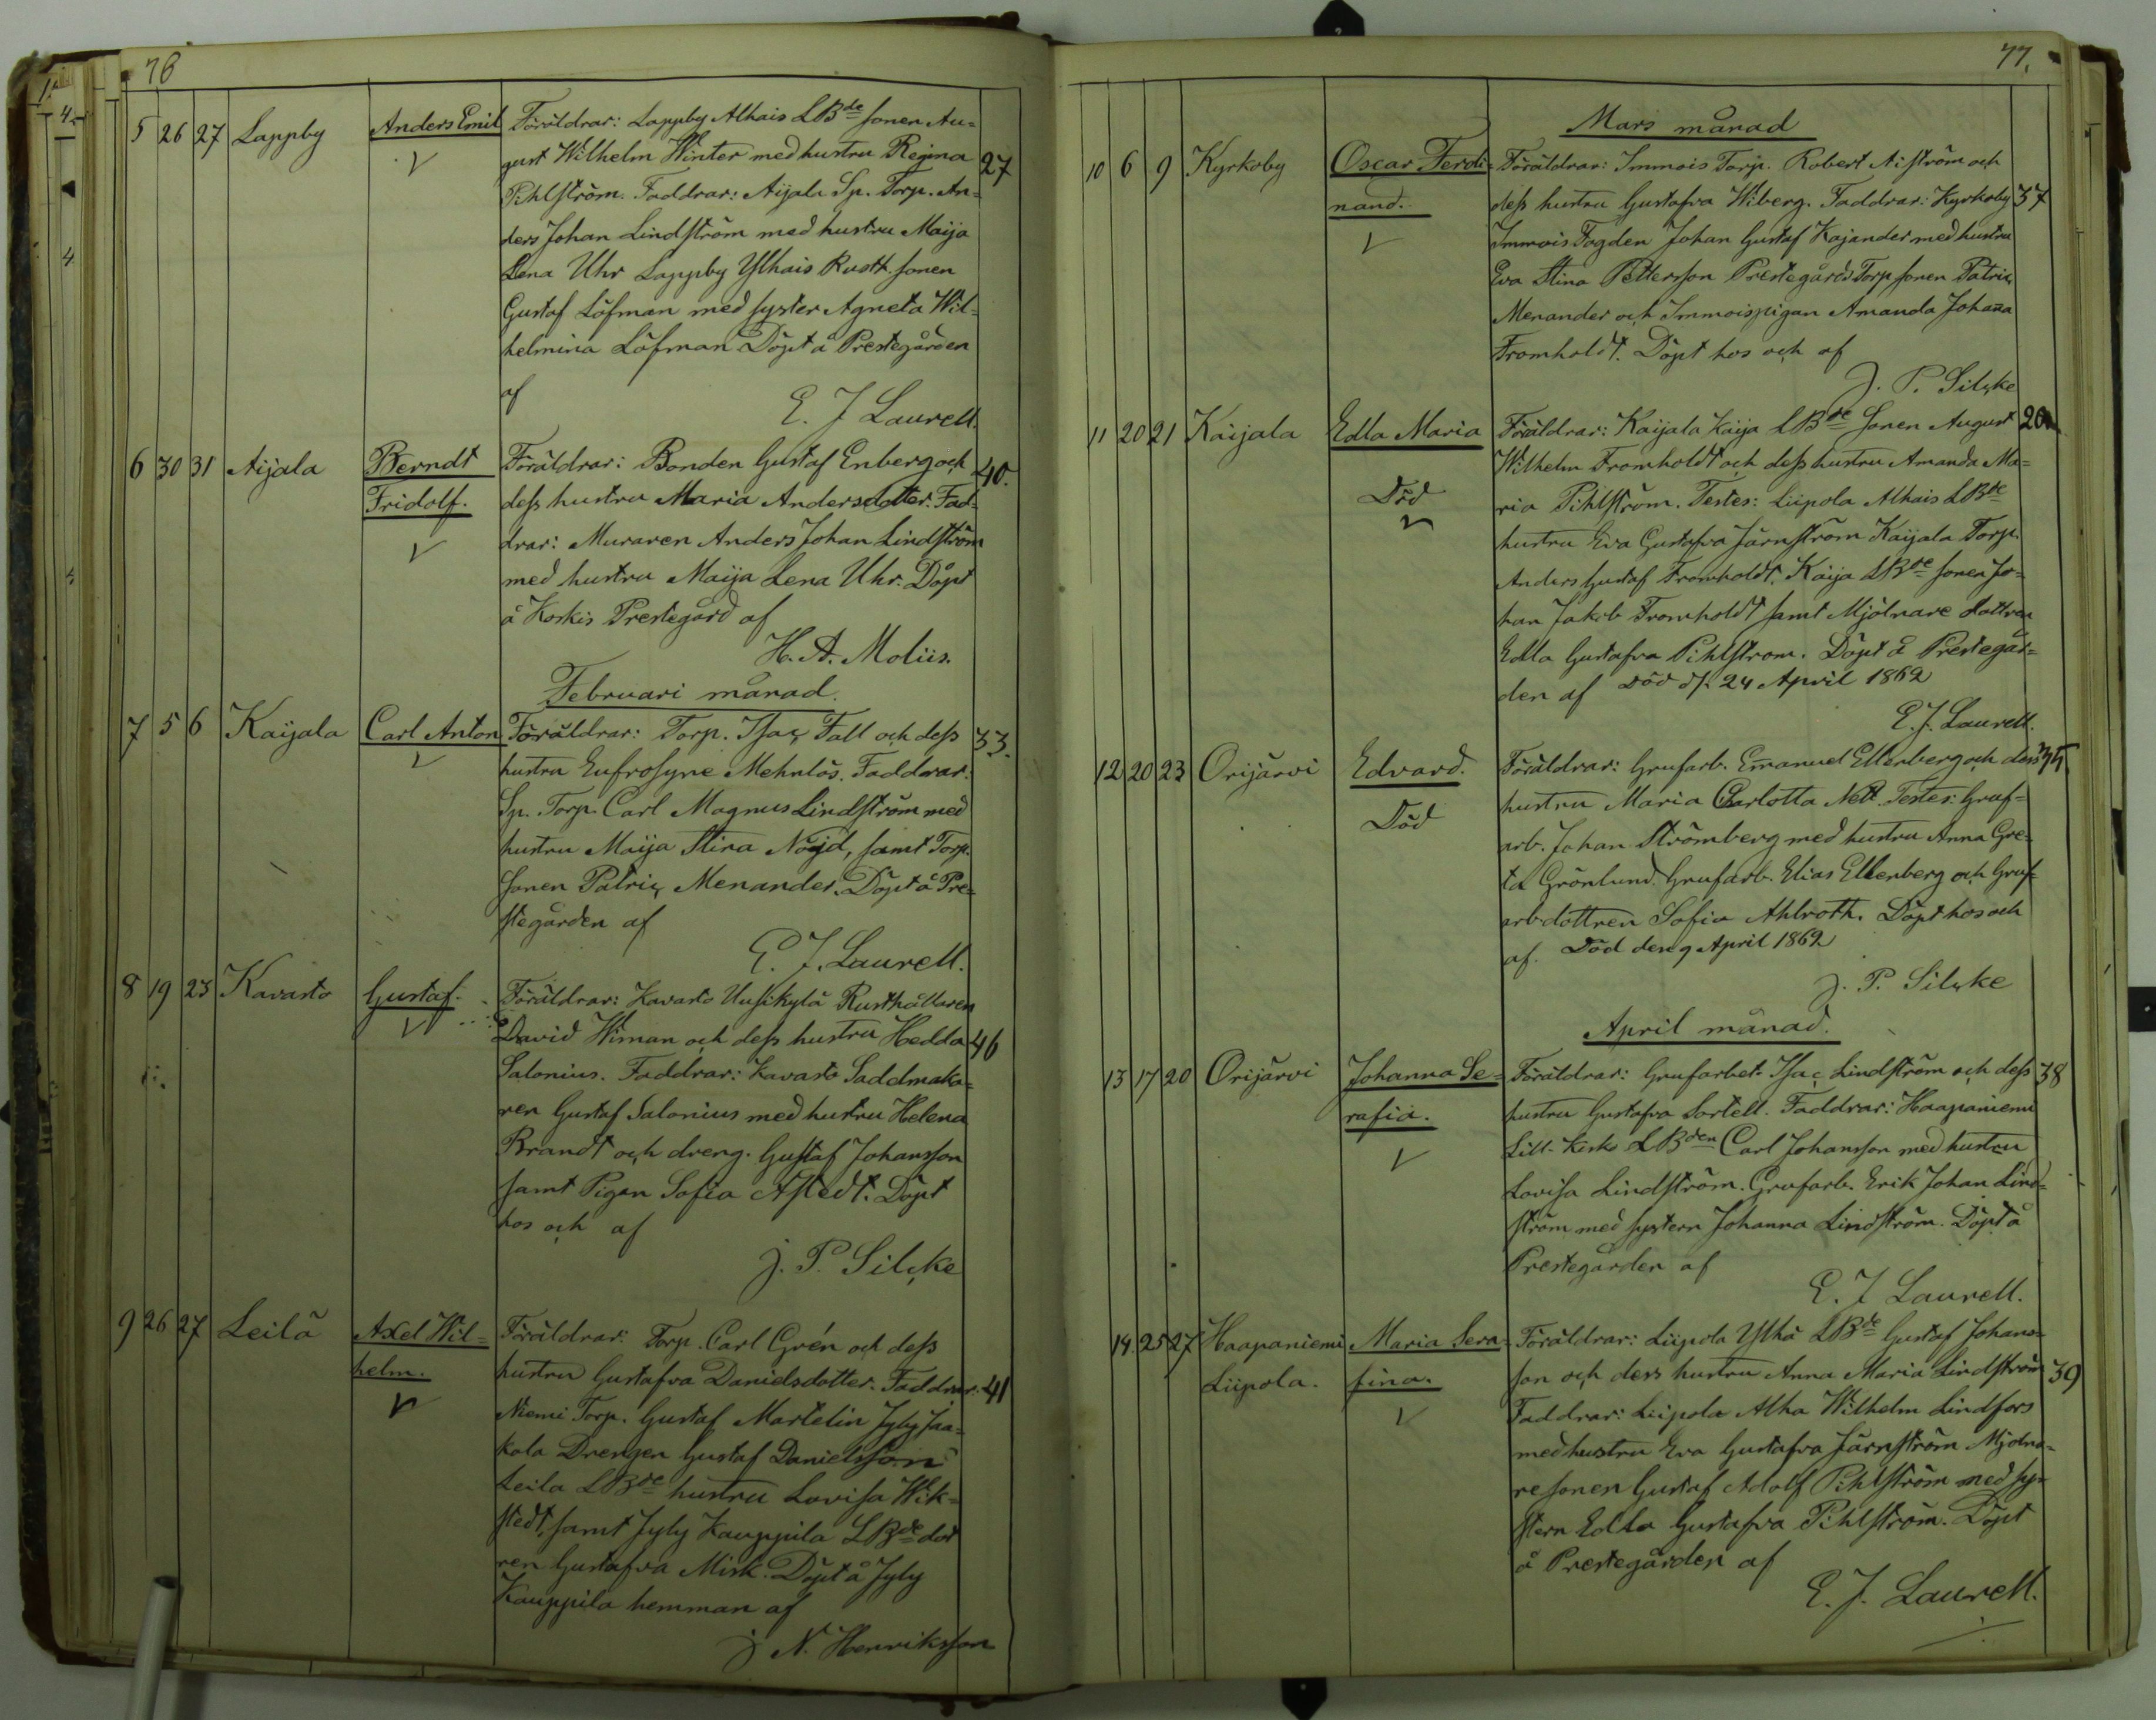 76
5 26 27 Lappby Anders Emil Föräldrar: Lappby Alhais LBde sonen Au=
gust Wilhelm Winter med hustru Regina 27
Pihlström. Faddrar: Aijala Sp. Torp. An=
ders Johan Lindström med hustru Maija
Lena Uhr Lappby Ylhais Rustt. sonen
Gustaf Löfman med syster Agneta Wil=
helmina Löfman Döpt å Prestegården
af
E. J Laurell.
6 30 31 Aijala Berndt Föräldrar: Bonden Gustaf Enberg och 40.
Fridolf. dess hustru Maria Andersdotter. Fad=
drar: Muraren Anders Johan Lindström
med hustru Maija Lena Uhr. Döpt
å Koskis Prestegård af
H. A. Moliis.
Februari månad.
7 5 6 Kaijala Carl Anton Föräldrar: Torp. Isac Fall och dess 33.
hustru Eufrosyne Mehnlös. Faddrar:
Sp. Torp. Carl Magnus Lindström med
hustru Maija Stina Nöjd, samt Torp.
sonen Patric Menander. Döpt å Pre=
stegården af
E. J. Laurell.
8 19 23 Kavasto Gustaf. Föräldrar: Kavasto Uusikylä Rusthållaren
David Wiman och dess hustru Hedda 46
Salonius. Faddrar: Kavasto Saddmaka=
ren Gustaf Salonius med hustru Helena
Brandt och dreng. Gustaf Johansson
samt Pigan Sofia Astedt. Döpt
hos och af
J. P. Silcke
9 26 27 Leilä Axel Wil= Föräldrar: Torp. Carl Grén och dess
helm. hustru Gustafva Danielsdotter. Faddrar: 41
Niemi Torp. Gustaf Martelin Jyly Jaa=
kola Drengen Gustaf Danielsson
Leila LBde hustru Lovisa Wik=
stedt, samt Jyly Kauppila LBde dot
ren Gustafva Misk. Döpt å Jyly
Kauppila hemman af
J N. Henriksson
77.
Mars månad
10 6 9 Kyrkoby Oscar Ferdi= Föräldrar: Immois Torp. Robert Aiström och
nand. dess hustru Gustafva Wiberg. Faddrar: Kyrkoby 37
Immois Fogden Johan Gustaf Kajander med hustru
Eva Stina Pettersson Prestegårds Torp sonen Patric
Menander och Immoispigan Amanda Johana
Fromholdt. Döpt hos och af
J. P. Silcke
11 20 21 Kaijala Edla Maria Föräldrar: Kaijala Kaija LBde Sonen August 20
Wilhelm Fromholdt och dess hustru Amanda Ma=
Död ria Pihlström. Testes: Liipola Alhais LBde
hustru Eva Gustafva Järnström Kaijala Torp.
Anders Gustaf Fromholdt. Kaija LBde sonen Jo=
han Jakob Fromholdt samt Mjölnare dottren
Edla Gustafva Pihlström. Döpt å Prestegår=
den af Död d. 24 April 1862
E. J. Laurell.
12 20 23 Orijärvi Edvard. Föräldrar: Grufarb. Emanuel Ellenberg och dess 35
hustru Maria Charlotta Nett. Testes: Gruf=
Död arb. Johan Strömberg med hustru Anna Gre=
ta Grönlund. Grufarb. Elias Ellenberg och Gruf=
arb dottren Sofia Ahlroth. Döpt hos och
af. Död den 9 April 1862
J. P. Silcke
April månad.
13 17 20 Orijärvi Johanna Se= Föräldrar: Grufarbet. Isac Lindström och dess 38
rafia. hustru Gustafva Sortell. Faddrar: Haapaniemi
Lill-Kisko LBden Carl Johansson med hustru
Lovisa Lindström. Grufarb. Erik Johan Lind=
ström med systern Johanna Lindström. Döpt å
Prestegården af
E. J Laurell.
14 25 27 Haapaniemi Maria Sera= Föräldrar: Liipola Ylhä LBde Gustaf Johans=
Liipola. fina. son och dess hustru Anna Maria Lindström 39
Faddrar: Liipola Alha Wilhelm Lindfors
med hustru Eva Gustafva Järnström Mjölna=
re sonen Gustaf Adolf Pihlström med sy=
stern Edla Gustafva Pihlström. Döpt
å Prestegården af
E. J. Laurell.